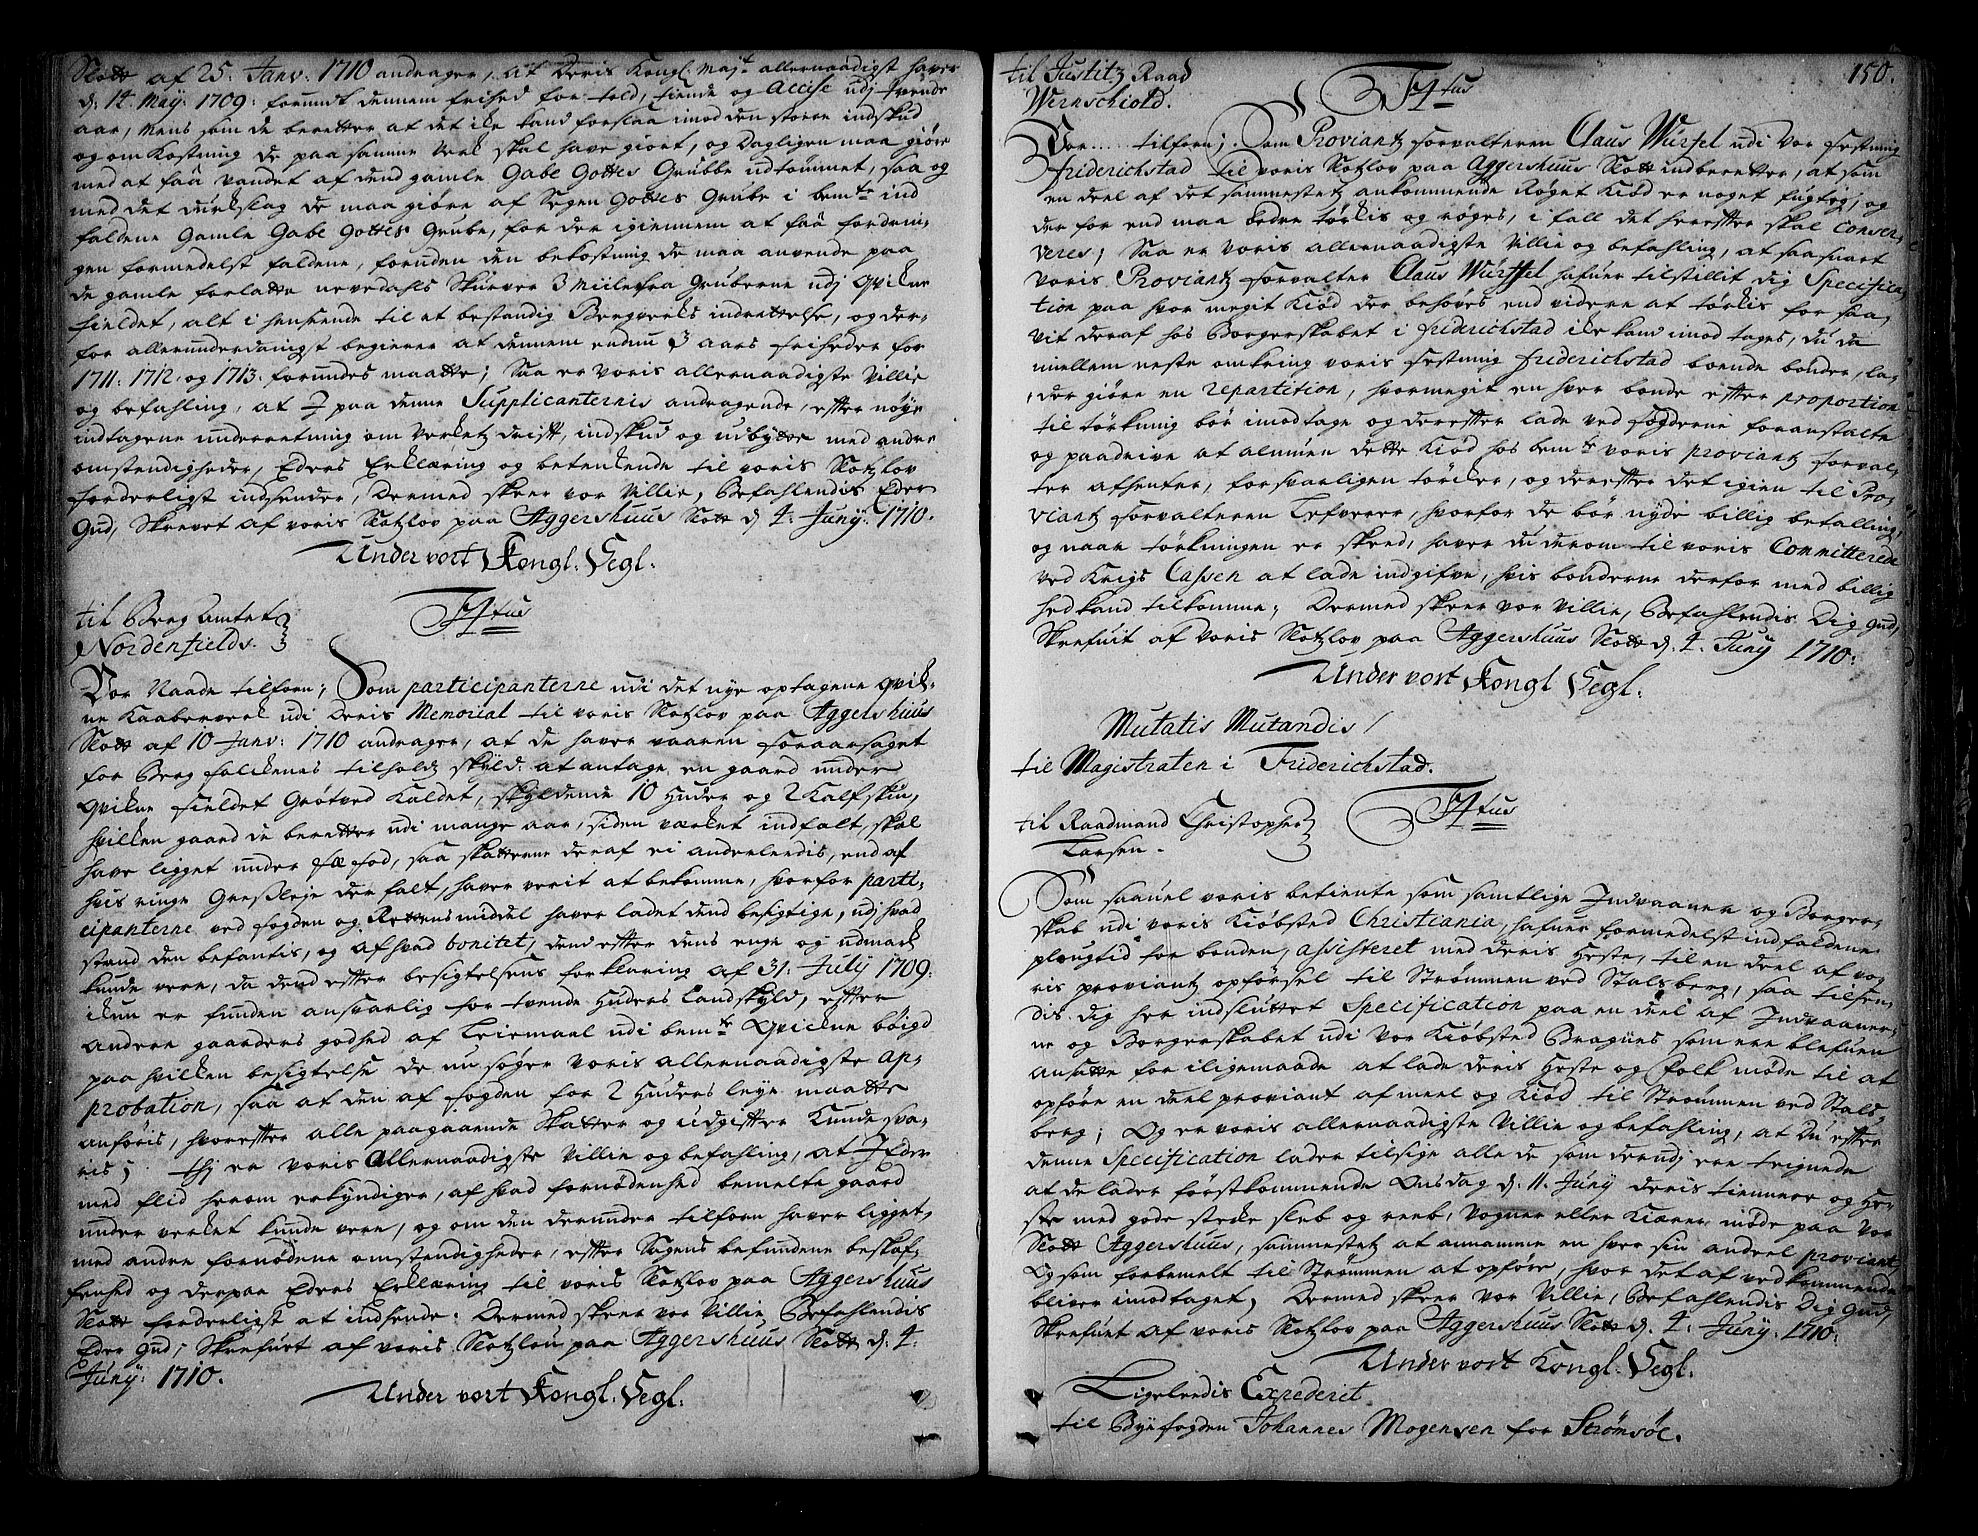 Slott af 25: Janv: 1710 andrager, at Deris Kongl: May:t allernaadigst haver
d: 14 May: 1709: forundt dennem frihed for told, tiende og Accise udj tvende
aar, Mens som de beretter at det icke kand forslaa imod den store indskud
og omkostning de paa samme Verk skal have giort, og Dagligen maa giøre
med at faa vandet af dend gamle Gabe Gottes Grubbe udtømmet, saa og
med det durkslag de maa giøre af Segen Gottes Grube i bem:te ind
faldene Gamle Gabe Gottes Grube, for der igiennem at faa fordrin-
gen formedelst faldene, foruden den bekostning de maa anvende paa
de gamle forlatte Skierver 3 miile fra Gruberne udj Qvikne
fieldet, alt i henseende til et bestandig Bergverks indrettelse, og der-
for allerunderdanigst begierer at dennem endnu 3 aars friheder for
1711: 1712: og 1713: forundes maatte; Saa er Voris allernaadigste Villie
og befahling, at I paa denne Supplicanternis andragende, efter nøye
indtagene underretning om Verketz drift, indskud og udbytte med andre
omstendigheder, Eders Erklæring og betenkende til voris Slotzlov
forderligst indsender, Dermed skeer vor Villie, Befahlendis Eder
Gud, Skrevet af voris Slotzlov paa Aggershuus Slott d: 4: Juny: 1710.
Under vort Kongl: Segl.
til Berg Amtet
Nordenfields.
Titus
Vor Naade tilforn; Som participanterne udi det nye optagene Qvik-
ne Kaaberverk udi Deris Memorial til voris Slotzlov paa Aggershuus
Slott af 10 Janv: 1710 andrager, at de haver vaaren foraarsaget
for Berg folckenes tilholdz skyld: at antage en gaard under
Qvikne fieldet Grøtved Kaldet, skyldende 10 Huder og 2 Kalfskin,
hvilken gaard de beretter udi mange aar, siden værket indfalt, skal
have ligget under fæ fod, saa skatterne deraf ei anderledis, end af
hvis ringe Græsleje der falt, haver verit at bekomme, hvorfor parti-
cipanterne ved fogden og Rettens middel haver ladet dend besigtige, udj hvad
stand den befantis, og af hvad bonitet, dend efter dens enge og udmark
kunde vere, da dend efter besigtelsens forklaring af 31: July 1709:
icken er funden ansvarlig for tvende Huders Landskyld, efter
andere gaarders godhed af Leiemaal udi bem:te Qvickne bøigd
paa hvilken besigtelse de nu søger Voris allernaadigste ap-
probation, saa at den af fogden for 2 Huders leye maatte
anføris, hvorefter alle paagaaende Skatter og udgifter Kunde sva-
ris; Thj er Voris Allernaadigste Villie og befahling, at I Eder
med flid herom erkyndiger, af hvad fornødenhed bemelte gaard
under verket kunde vere, og om den derunder tilforn haver ligget,
med andre fornødene omstendigheder, efter Sagens befundene beskaf-
fenhed og derpaa Eders Erklæring til voris Slotzlov paa Aggershuus
Slott forderligst at indsende: Dermed skeer vor Villie, Befahlendis
Eder Gud; Skrefuet af voris Slotzlov paa Aggershuus Slott d: 4:
Juny: 1710.
Under vort Kongl: Segl:
150.
til Justitz Raad
Wernschiold.
Titus
Vor ..... tilforn; Som Proviantz forvalteren Claus Würfel udi Vor festning
friderichstad til voris Slotzlov paa Aggershuus Slott indberetter, at som
en deel af det sammestetz ankommende Røget Kiød er noget fugtig, og
der for end maa bedre tørkis og røges, i fall det herefter skal conser-
veres; Saa er voris allernaadigste Villie og befahling, at saa snart
voris Proviantz forvalter Claus Würffel hafuer tilstillit dig Specifica-
tion paa hvor megit Kiød der behøves end videre at tørkis for saa
vit deraf hos Borgerskabet i friderichstad icke kand imod tages, du da
imellem neste omkring voris festning friderichstad boende bønder, la-
der giøre en repartition, hvormegit en hver bonde efter proportion
til tørkning bør imodtage og derefter lade ved fogderne foranstalte
og paadrive at almuen dette Kiød hos bem:te voris proviantz forval-
ter afhenter, forsvarligen tørcker, og derefter det igien til Pro-
viantz forvalteren lefverer, hvorfor de bør nyde billig betalling,
og naar tørkningen er skeed, haver du derom til voris Committerede
ved Krigs Cassen at lade indgifve, hvis bønderne derfor med billig
hed kand tilkomme; Dermed skeer vor Villie, Befahlendis Dig Gud,
Skrefuit af voris Slotzlov paa Aggershuus Slott d. 4. Juny 1710:
Under vort Kongl Segl:
Mutatis Mutandis/
til Magistraten i Friderichstad.
til Raadmand Christopher
Larsen.
Titus
Som saavel voris betiente som samtlige Indvaaner og Borger-
skab udi voris Kiøbsted Christiania, hafuer formedelst indfaldene
plougtid for bonden, assisteret med deris Heste, til en deel af vo-
ris proviantz opførsel til Strømmen ved Stalsberg, saa tilsen-
dis dig her indsluttet Specification paa en deel af Indvaaner-
ne og Borgerskabet udi Vor Kiøbsted Bragnes som ere blefuen
ansatte for iligemaade at lade deris Heste og Folk møde til at
opføre en deel proviant af meel og Kiød til Strømmen ved Stals
berg; Og er voris allernaadigste Villie og befahling, at Du efter
denne Specification lader tilsige alle de som derudj ere teignede
at de lader førstkommende Onsdag d: 11. Juny deris tienere og He-
ste med gode sterke sleb og reeb, Vogner eller Kiærer møde paa vor
Slott Aggershuus, sammestetz at annamme en hver sin andeel proviant
Og som forbemelt til Strømmen at opføre, hvor det af vedkommende
bliver imodtaget, Dermed skeer vor Villie, Befahlendis Dig Gud,
Skrefuet af voris Slotzlov paa Aggershuus Slott d. 4: Juny: 1710:
Under vort Kongl: Segl:
Ligeledis Expederet
til Byefogden Johannes Mogensen for Strømsøe.